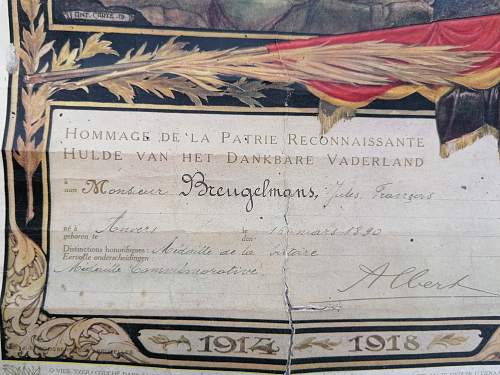 ANT. CARTE 19
HOMMAGE DE LA PATRIE RECONNAISSANTE
HULDE VAN HET DANKBARE VADERLAND
à
aan Monsieur Breugelmans, Jules, François
né à Anvers le
geboren te den mars 1890
Distinctions honorifiques: Médaille de la Victoire
Eervolle onderscheidingen
Médaille Commémorative
Albert
1914 1918